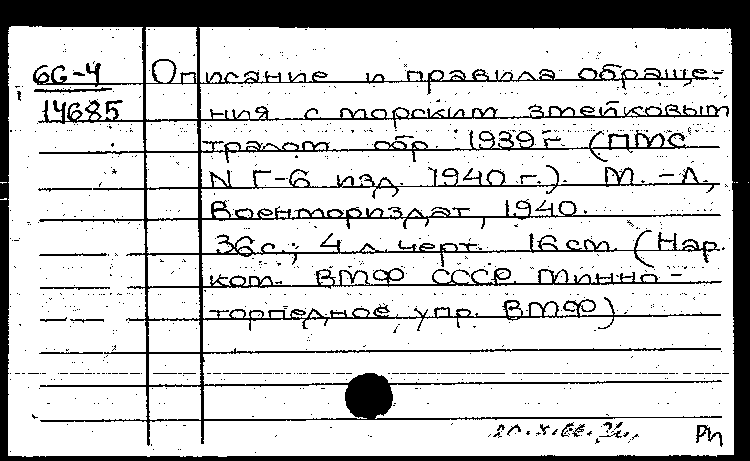 6G-4
14685
Описание и правила обраще-
ния с морским змейковым
тралом обр. 1939 г. (ПМС
N Г-6 изд. 1940 г.). М.-Л.,
Военмориздат, 1940.
36 с.; 4 л. черт. 16 см. (Нар.
ком. ВМФ СССР. Минно-
торпедное упр. ВМФ)